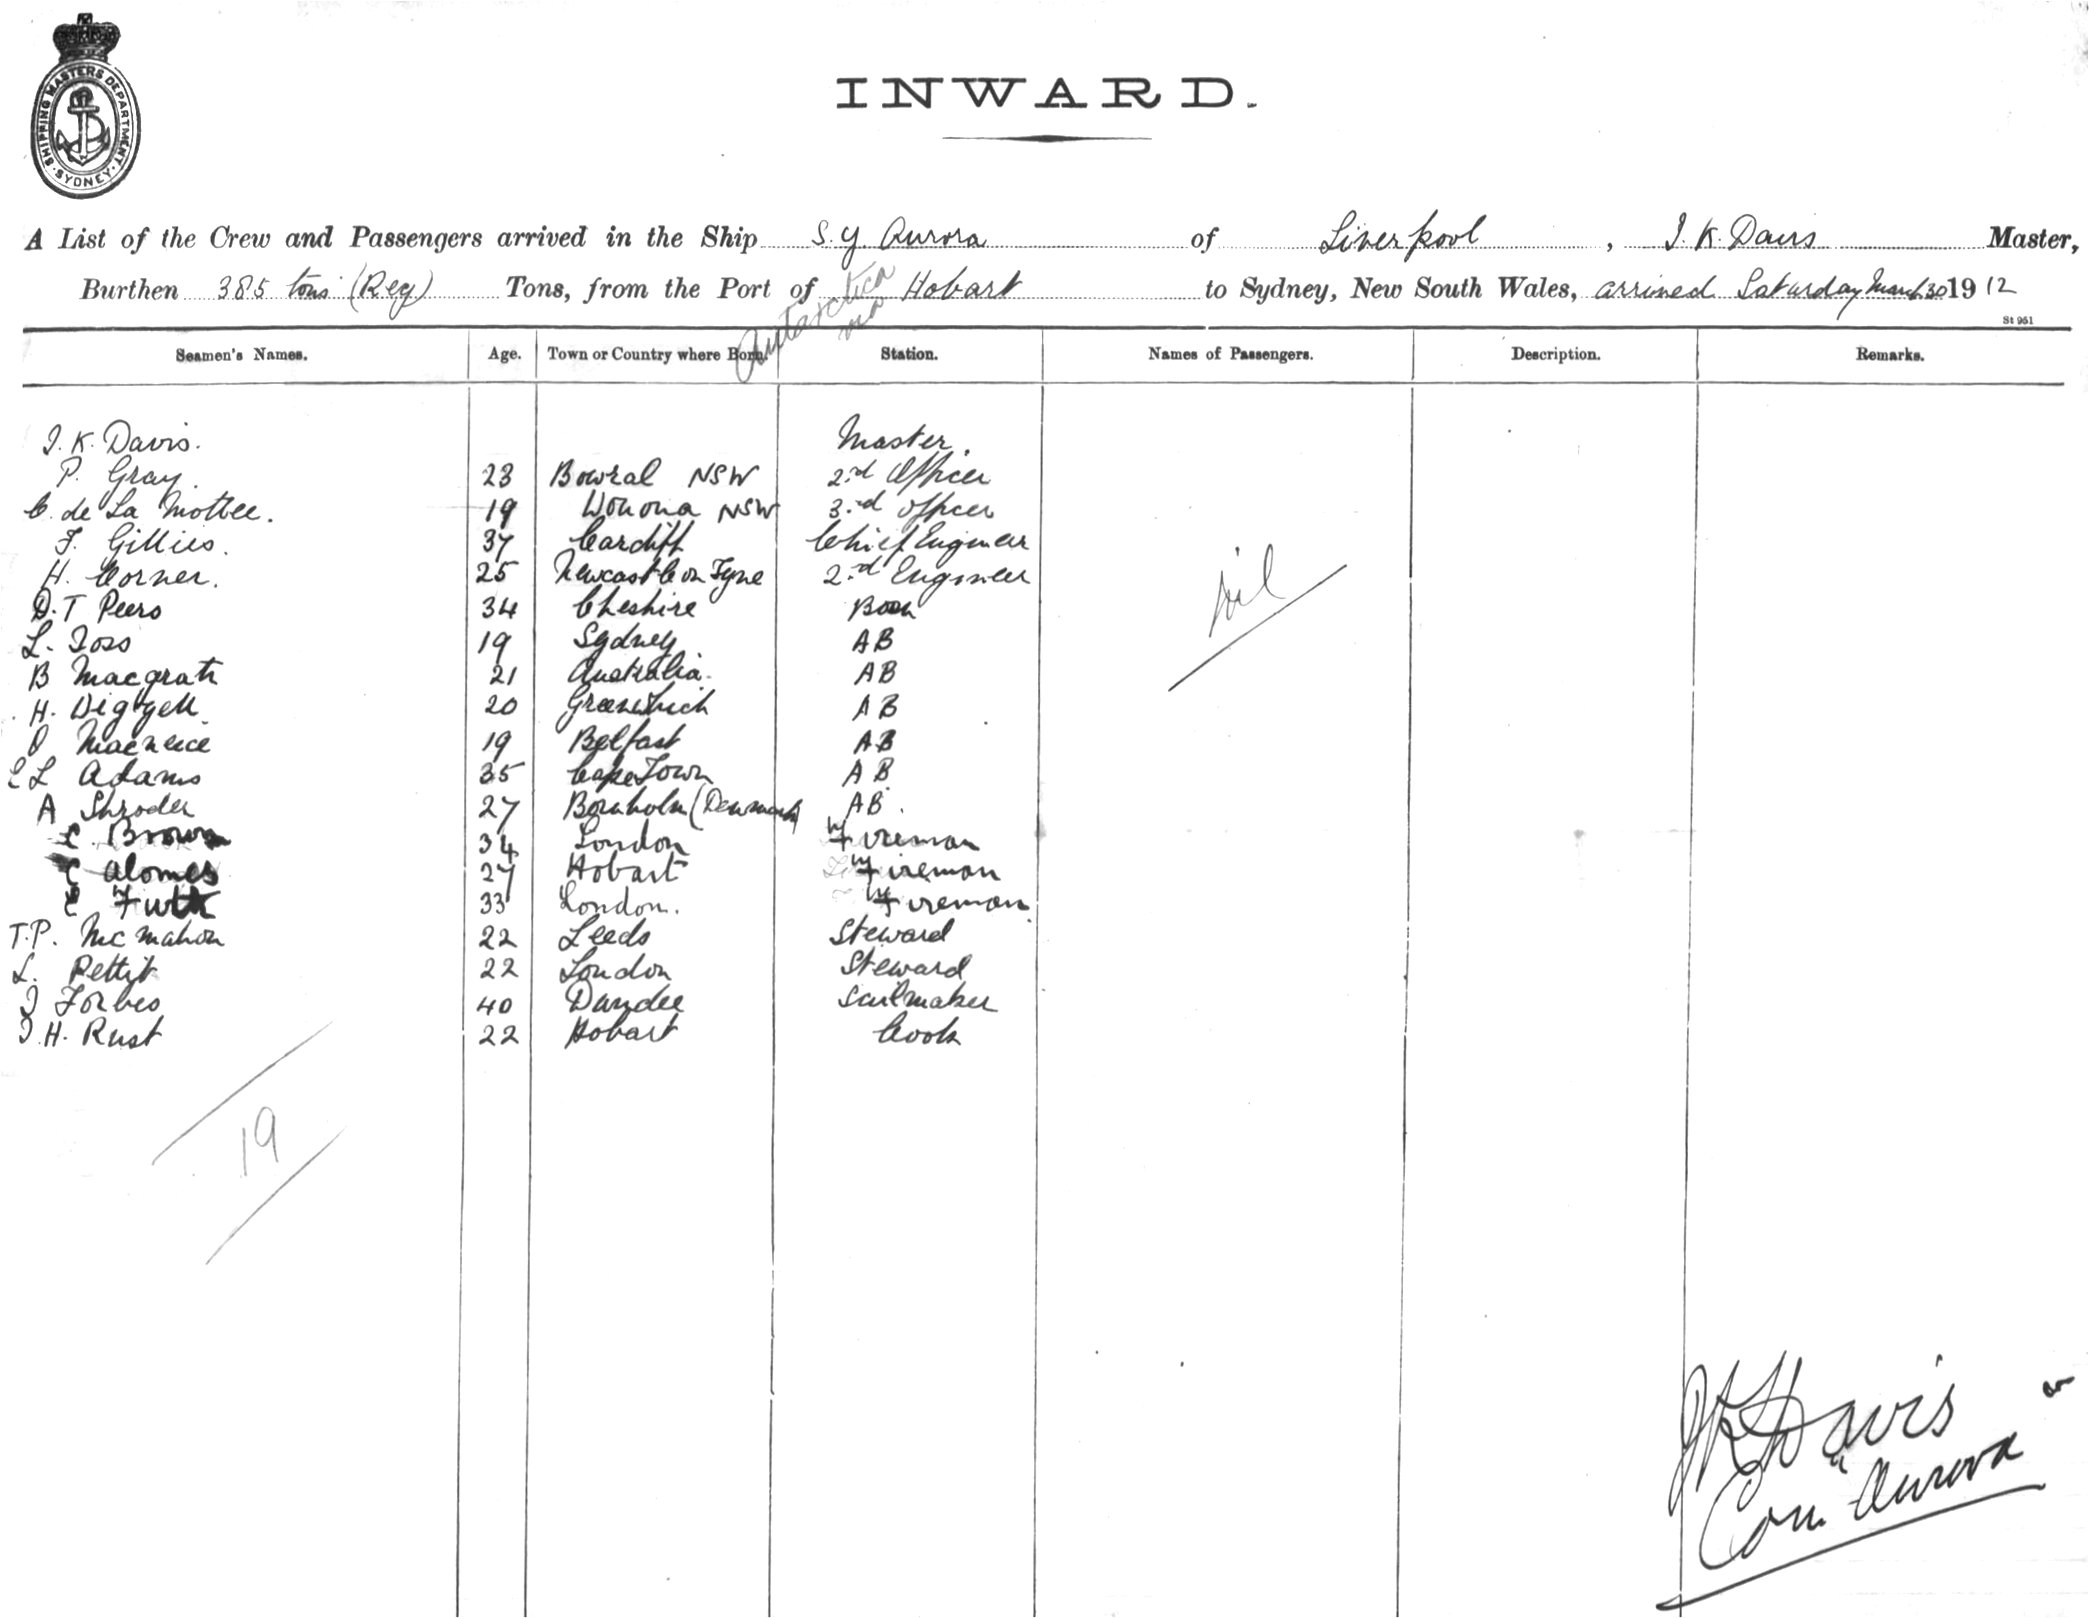 SHIPPING MASTERS DEPARTMENT
SYDNEY
INWARD.
A List of the Crew and Passengers arrived in the Ship S.Y. Aurora of Liverpool, J. K. Davis Master,
Burthen 385 tons (Reg) Tons, from the Port of Antarctica via Hobart to Sydney, New South Wales, arrived Saturday March 30 1912
St 961
Seamen's Names. Age. Town or Country where Born. Station. Names of Passengers. Description. Remarks.
J. K. Davis. Master.
P. Gray. 23 Bowral NSW 2nd Officer
C. de La Mottee. 19 Wonona NSW 3rd Officer
F. Gillies. 37 Cardiff Chief Engineer
H. Corner. 25 Newcastle on Tyne 2nd Engineer
D. T Peers 34 Cheshire Bosn
L. Joss 19 Sydney AB
B Macgrath 21 Australia. AB
H. 20 Greenwich AB
Macneice 19 Belfast AB
C L Adams 35 Cape Town AB
A Shroder 27 Bornholm (Denmark) AB.
C. Brown 34 London Fireman
C Alomes 27 Hobart Fireman
33 London. Fireman
T.P. McMahon 22 Leeds Steward
L. Pettit 22 London Steward
J Forbes 40 Dundee Sailmaker
J. H. Rust 22 Hobart Cook
nil
19
JK Davis
Com. Aurora